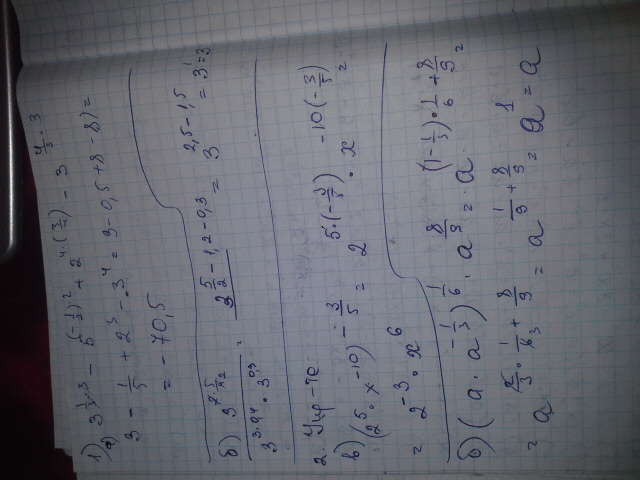 1) a) 3^{\frac{1}{3}·3} - 5^{(-\frac{1}{2})^2} + 2^{4·(\frac{3}{4})} - 3^{\frac{4}{3}·3}
3 - \frac{1}{5} + 2^3 - 3^4 = 3 - 0,5 + 8 - 81 =
= - 70,5
б) \frac{3^{2·\frac{5}{2}}}{3^{3·0,4} · 3^{0,3}} = 3^{\frac{5}{2} - 1,2 - 0,3} = 3^{2,5 - 1,5} = 3^1 = 3
2. Упр-те
в) (2^5 · x^{-10})^{-\frac{3}{5}} = 2^{5·(-\frac{3}{5})} · x^{-10(-\frac{3}{5})} =
= 2^{-3} · x^6
б) (a · a^{-\frac{1}{3}})^{\frac{1}{6}} · a^{\frac{8}{9}} = a^{(1-\frac{1}{3})·\frac{1}{6} + \frac{8}{9}} =
= a^{\frac{2}{3}·\frac{1}{6} + \frac{8}{9}} = a^{\frac{1}{9} + \frac{8}{9}} = a^1 = a